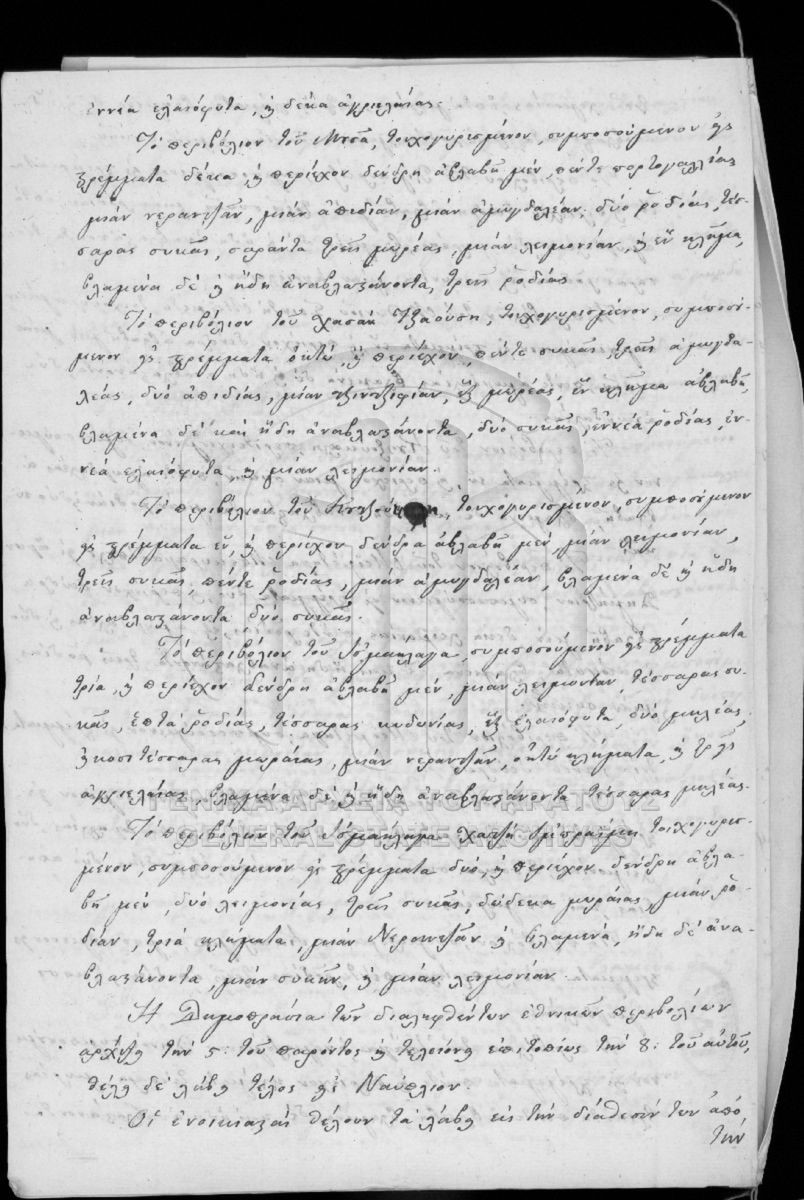 ἐννέα ἐλαιόφυτα, ἡ δέκα ἀγριελαίας.
Τὸ περιβόλιον τοῦ Μουσᾶ, τοιχογυρισμένον, συμποσούμενον εἰς
στρέμματα δέκα, ἡ περιέχον δένδρη ἀβλαβῆ μὲν, πέντε πορτογαλλίας
μίαν νεραντζιὰν, μίαν ἀπιδίαν, μίαν ἀμυγδαλέαν, δύο ῥοδίας, τέσ-
σαρας συκιᾶς, σαράντα τρεῖς μωρέας, μίαν λειμονίαν, ἡ ἓν κλῆμα,
βλαμένα δὲ ἡ ἤδη ἀναβλαξάνοντα, τρεῖς ῥοδίας
Τὸ περιβόλιον τοῦ Χασὰν Τζαούση, τοιχογυρισμένον, συμποσύ-
μενον εἰς στρέμματα ὀκτὼ, ἡ περιέχον, πέντε συκιᾶς, τρεῖς ἀμυγδα-
λέας, δύο ἀπιδίας, μίαν τζιντζιφίαν, ἓξ μωρέας, ἓν κλῆμα ἀβλαβῆ,
βλαμένα δὲ καὶ ἤδη ἀναβλαξάνοντα, δύο συκιᾶς, ἐννέα ῥοδίας, ἐν-
νέα ἐλαιόφυτα, ἡ μίαν λειμονίαν.
Τὸ περιβόλιον τοῦ τοιχογυρισμένον, συμποσύμενον
εἰς στρέμματα ἓν, ἡ περιέχον δένδρα ἀβλαβῆ μὲν, μίαν λειμονίαν,
τρεῖς συκιᾶς, πέντε ῥοδίας, μίαν ἀμυγδαλέαν, βλαμένα δὲ ἡ ἤδη
ἀναβλαξάνοντα δύο συκιᾶς.
Τὸ περιβόλιον τοῦ Ἰσμαηλαγα, συμποσούμενον εἰς στρέμματα
τρία, ἡ περιέχον δένδρη ἀβλαβῆ μὲν, μίαν λειμονίαν, τέσσαρας συ-
κιᾶς, ἑπτὰ ῥοδίας, τέσσαρας κυδωνίας, ἓξ ἐλαιόφυτα, δύο μηλέας,
εἰκοσιτέσσαρας μωραίας, μίαν νεραντζιὰν, ὀκτὼ κλήματα, ἡ τρεῖς
ἀγριελαίας, βλαμένα δὲ ἡ ἤδη ἀναβλαξάνοντα τέσσαρας μηλέας.
ΓΕΝΙΚΑ ΑΡΧΕΙΑ ΤΟΥ ΚΡΑΤΟΥΣ
Τὸ περιβόλιον τοῦ Ἰσμαηλαγα Χατζῆ Ἰμπραήμη τοιχογυρισ-
GENERAL STATE ARCHIVES
μένον, συμποσούμενον εἰς στρέμματα δύο, ἡ περιέχον δένδρη ἀβλα-
βῆ μὲν, δύο λειμονίας, τρεῖς συκιᾶς, δώδεκα μωραίας, μίαν ῥο-
δίαν, τρία κλήματα, μίαν Νεροντζιὰν ἡ βλαμένα, ἤδη δὲ ἀνα-
βλαξάνοντα, μίαν συκῆν, ἡ μίαν λειμονίαν.
Ἡ Δημοπρασία τῶν διαληφθέντων ἐθνικῶν περιβολίων
ἀρχίζει τὴν 5: τοῦ παρόντος ἡ τελειόνει ἐπιτοπίως τὴν 8: τοῦ αὐτοῦ,
θέλει δὲ λάβει τέλος εἰς Ναύπλιον.
Οἱ ἐνοικιασταὶ θέλουν τὰ λάβει εἰς τὴν διάθεσίν των ἀπὸ
τὴν